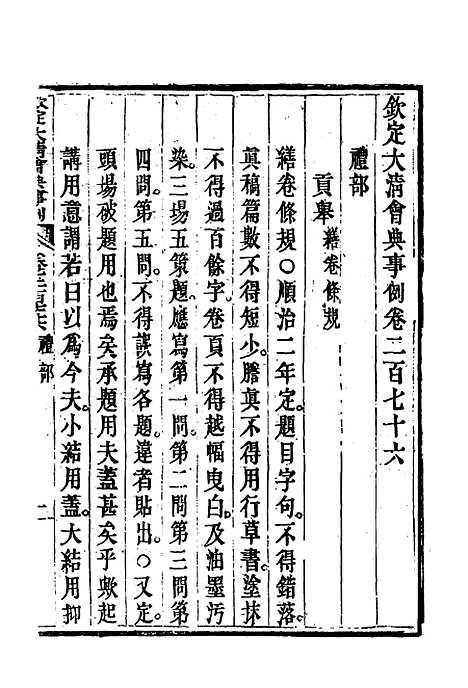 欽定大淸會典事例卷二百七十六
禮部
貢舉 繕卷條規
繕卷條規○順治二年定。題目字句。不得錯落。
眞稿篇數不得短少。謄眞不得用行草書。塗抹
不得過百餘字。卷頁不得越幅曳白。及油墨汚
染。三場五策題。應寫第一問。第二問第三問第
四問。第五問。不得誤寫各題。違者貼出。○又定。
頭場破題用也焉矣。承題用夫蓋甚矣乎歟。起
講用意謂若曰以爲今夫。小結用蓋。大結用抑
欽定大淸會典事例 卷二百七十六 禮部 一